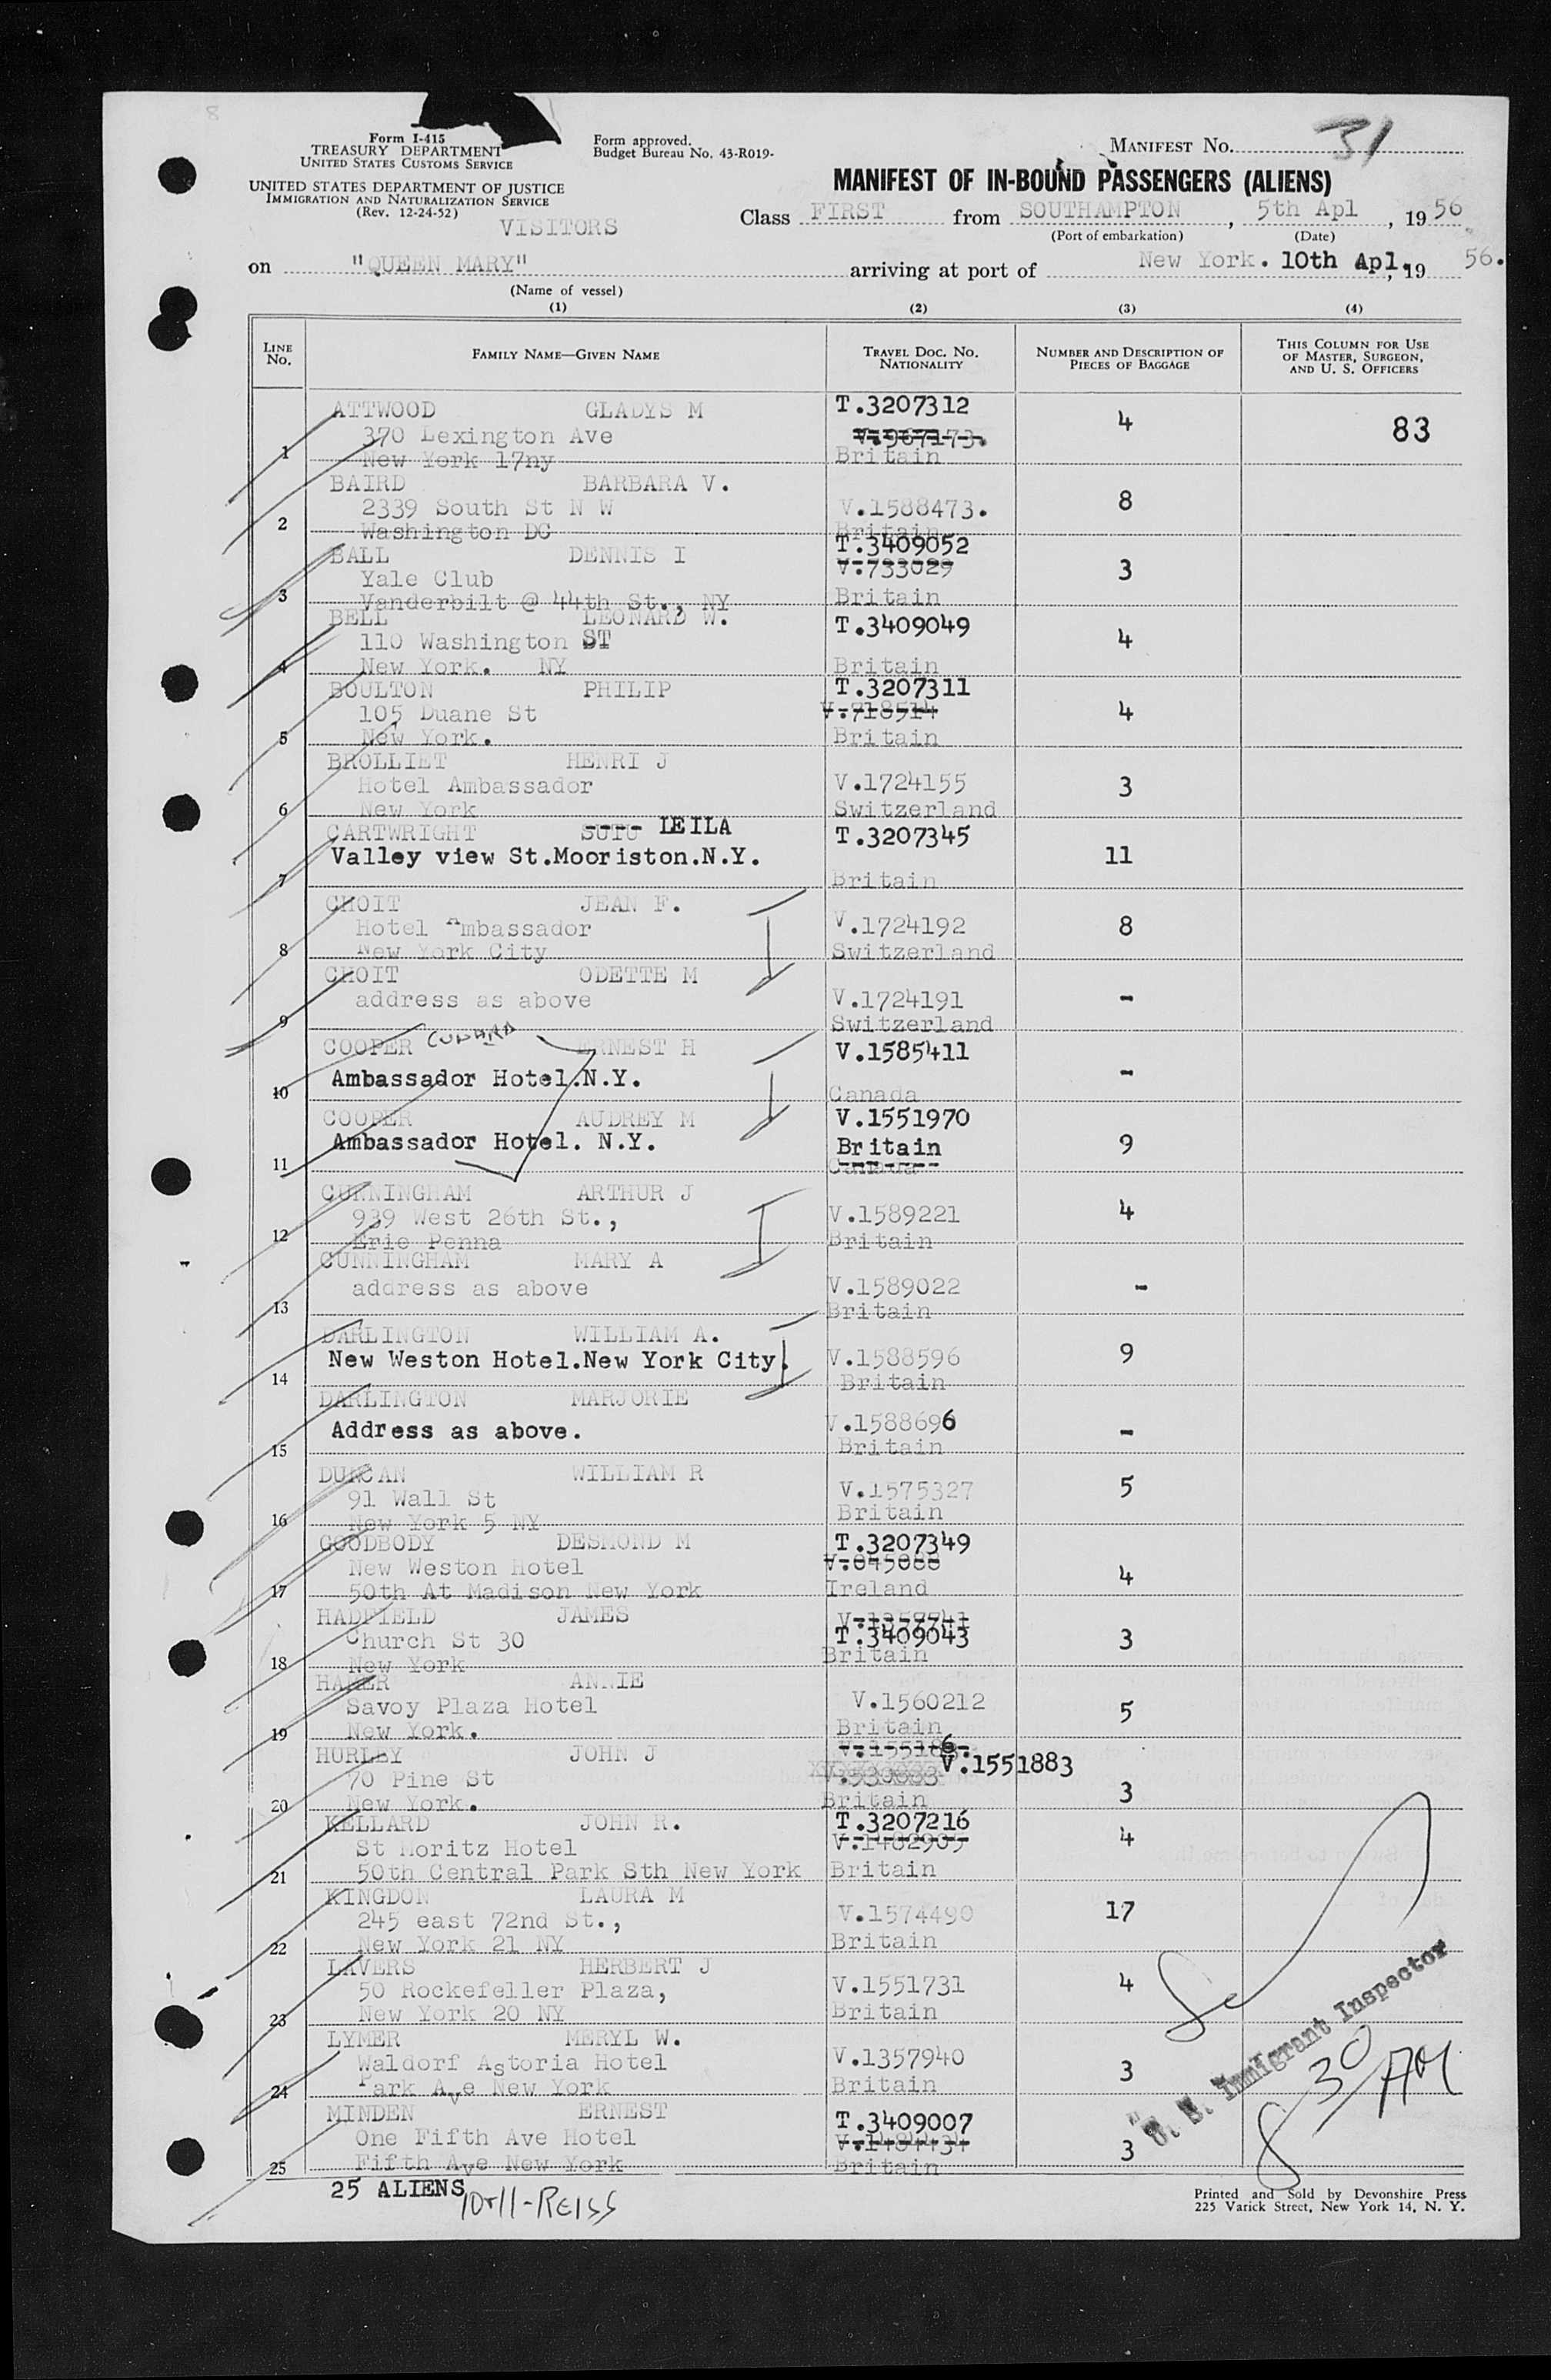 8
Form I-415
TREASURY DEPARTMENT
UNITED STATES CUSTOMS SERVICE
UNITED STATES DEPARTMENT OF JUSTICE
IMMIGRATION AND NATURALIZATION SERVICE
(Rev. 12-24-52)
Form approved.
Budget Bureau No. 43-R019-
MANIFEST No. 31
MANIFEST OF IN-BOUND PASSENGERS (ALIENS)
VISITORS
Class FIRST from SOUTHAMPTON, 5th Apl, 1956
(Port of embarkation) (Date)
on "QUEEN MARY" arriving at port of New York. 10th Apl., 19 56.
(Name of vessel)
(1) (2) (3) (4)
LINE No. FAMILY NAME—GIVEN NAME TRAVEL DOC. No. NATIONALITY NUMBER AND DESCRIPTION OF PIECES OF BAGGAGE THIS COLUMN FOR USE OF MASTER, SURGEON, AND U. S. OFFICERS
ATTWOOD GLADYS M T.3207312 4 83
370 Lexington Ave V.967173.
1 New York 17ny Britain
BAIRD BARBARA V. 8
2339 South St N W V.1588473.
2 Washington DC Britain
BALL DENNIS I T.3409052
Yale Club V.733029 3
3 Vanderbilt @ 44th St., NY Britain
BELL LEONARD W. T.3409049
110 Washington ST 4
4 New York. NY Britain
BOULTON PHILIP T.3207311
105 Duane St V.718514 4
5 New York. Britain
BROLLIET HENRI J
Hotel Ambassador V.1724155 3
6 New York Switzerland
CARTWRIGHT SUTU LEILA T.3207345
Valley view St.Mooriston.N.Y. 11
7 Britain
CHOIT JEAN F.
Hotel Ambassador V.1724192 8
8 New York City Switzerland
CHOIT ODETTE M
address as above V.1724191 -
9 Switzerland
COOPER CUNARD ERNEST H V.1585411
Ambassador Hotel.N.Y. -
10 Canada
COOPER AUDREY M V.1551970
Ambassador Hotel. N.Y. Britain 9
11 Canada
CUNNINGHAM ARTHUR J
939 West 26th St., V.1589221 4
12 Erie Penna Britain
CUNNINGHAM MARY A
address as above V.1589022 -
13 Britain
DARLINGTON WILLIAM A.
New Weston Hotel.New York City. V.1588596 9
14 Britain
DARLINGTON MARJORIE
Address as above. V.1588696 -
15 Britain
DUNCAN WILLIAM R
91 Wall St V.1575327 5
16 New York 5 NY Britain
GOODBODY DESMOND M T.3207349
New Weston Hotel V.045088 4
17 50th At Madison New York Ireland
HADFIELD JAMES
Church St 30 T.3409043 3
18 New York Britain
HAMER ANNIE
Savoy Plaza Hotel V.1560212 5
19 New York. Britain
HURLEY JOHN J
70 Pine St V.1551883 3
20 New York. Britain
KELLARD JOHN R. T.3207216
St Moritz Hotel V.1482905 4
21 50th Central Park Sth New York Britain
KINGDON LAURA M
245 east 72nd St., V.1574490 17
22 New York 21 NY Britain
LAVERS HERBERT J
50 Rockefeller Plaza, V.1551731 4
23 New York 20 NY Britain
LYMER MERYL W.
Waldorf Astoria Hotel V.1357940 3
24 Park Ave New York Britain
MINDEN ERNEST T.3409007
One Fifth Ave Hotel V.1484434 3
25 Fifth Ave New York Britain
U. S. Immigrant Inspector
8 30 AM
25 ALIENS
10+11-REISS
Printed and Sold by Devonshire Press
225 Varick Street, New York 14, N. Y.